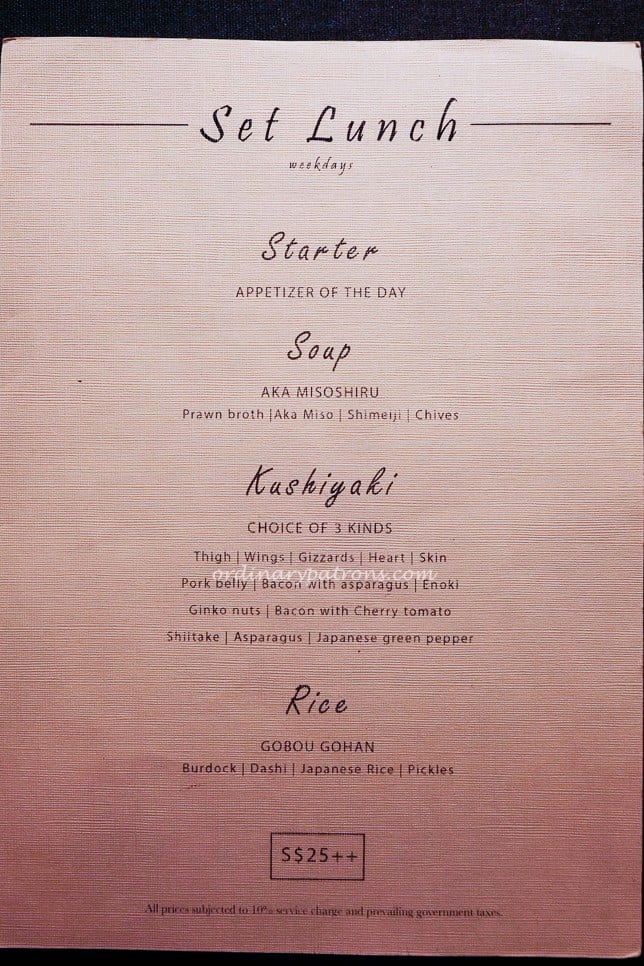 Set Lunch
weekdays
Starter
APPETIZER OF THE DAY
Soup
AKA MISOSHIRU
Prawn broth |Aka Miso | Shimeiji | Chives
Kushiyaki
CHOICE OF 3 KINDS
Thigh | Wings | Gizzards | Heart | Skin
ordinarypatrons.com
Pork belly | Bacon with asparagus | Enoki
Ginko nuts | Bacon with Cherry tomato
Shiitake | Asparagus | Japanese green pepper
Rice
GOBOU GOHAN
Burdock | Dashi | Japanese Rice | Pickles
S$25++
All prices subjected to 10% service charge and prevailing government taxes.